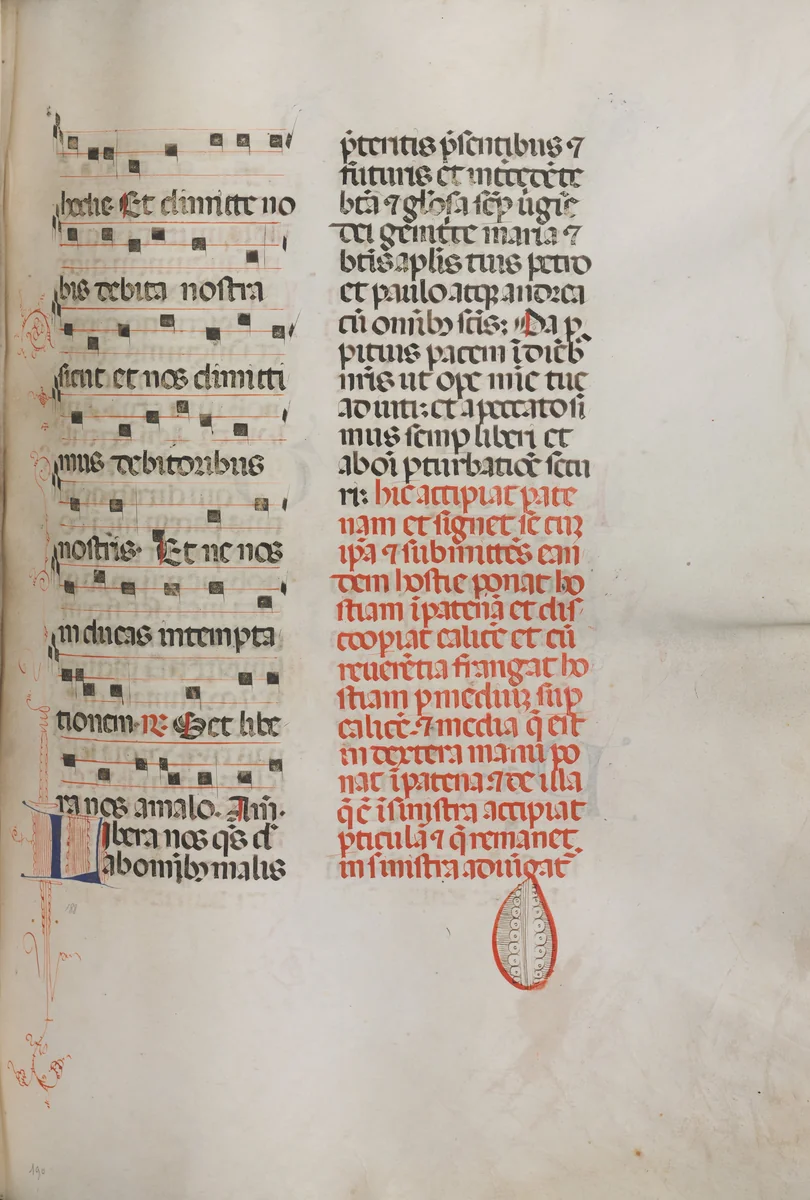 hodie. Et dimitte no
bis debita nostra
sicut et nos dimitti
mus debitoribus
nostris. Et ne nos
inducas intempta
tionem. ℞ Set libe
ra nos amalo. Am̄.
Libera nos q̄s d̄
abomībꝰ malis
p̄teritis p̄sentibus ⁊
futuris et intercedēte
btā ⁊ gl̄osa sēp ūgīe
dei genitrice maria ⁊
btīs ap̄lis tuis petro
et paulo atqꝫ andrea
cū omībꝰ scīs: Da p̱
pitius pacem ī dieb̄
nr̄is ut ope mīe tue
adiuti: et apeccato si
mus semp̱ liberi et
ab oī p̱turbatiōe secu
ri: hic accipiat pate
nam et signet sē cuꝫ
ip̄a ⁊ submittēs ean
dem hostie ponat ho
stiam ī patenā et dis
cooperiat calicē et cū
reuerētia frangat ho
stiam p̱ mediuꝫ sup̱
calicē. ⁊ media q̄ est
in dextera manu po
nat ī patena: ⁊ de illa
q̄ ē ī sinistra accipiat
p̱ticulā ⁊ q̄ remanet
in sinistra adiūgat
181
190